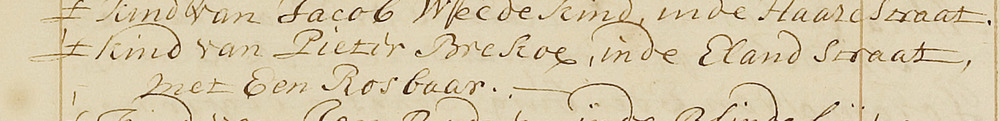 't kind van Jacob Weedekind, inde Haaze Straat.
't kind van Pieter Brekoe, inde Eland Straat,
met Een Rosbaar.